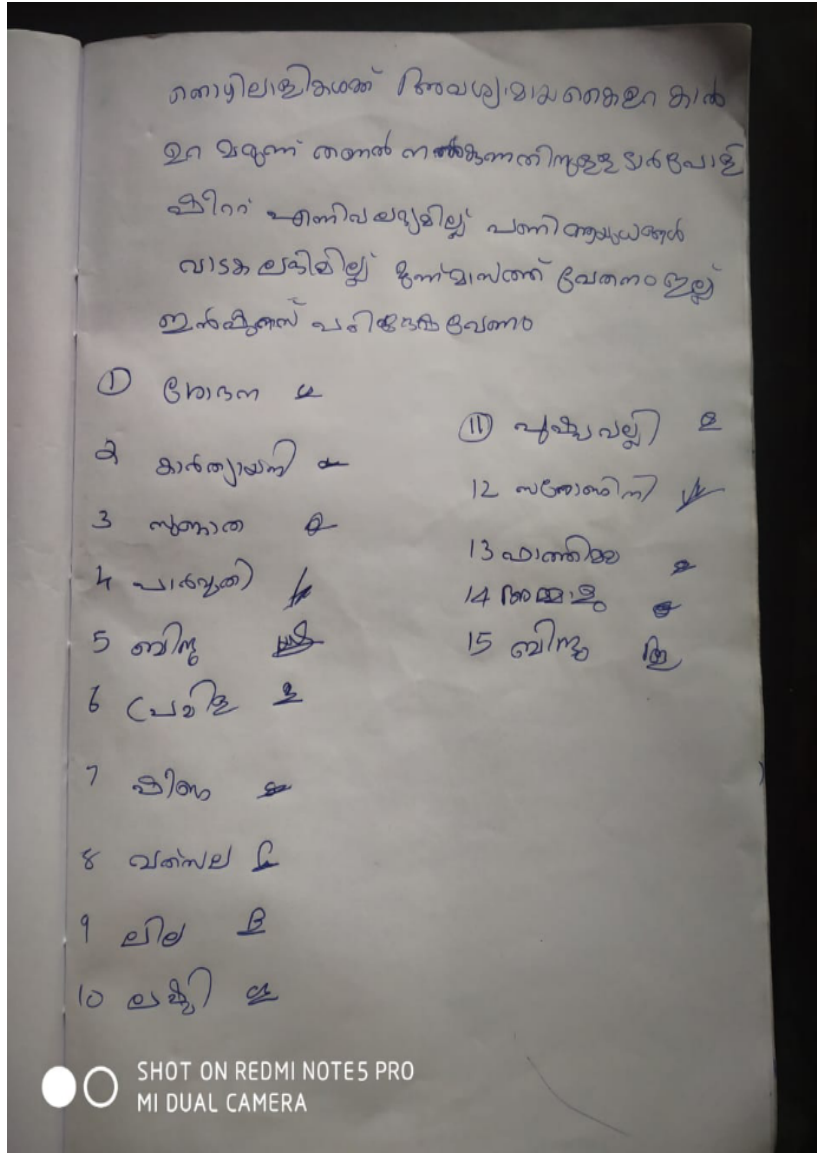 തൊഴിലാളികൾക്ക് അവശ്യമായ കൈഉറ കാൽ
ഉറ മരുന്ന് തണൽ നൽകുന്നതിനുള്ള ടാർപോളി
ഷീററ് എന്നിവ ലഭ്യമില്ല് പണി ആയുധങ്ങൾ
വാടക ലഭിമില്ല് മൂന്ന് മാസത്ത് വേതനം ഇല്ല്
ഇൻഷുറൻസ് പരിരക്ഷ വേണം
① ശോദന
2 കാർത്യായനി
3 സുജാത
4 പാർവ്വതി
5 ബിന്ദു
6 പ്രമിള
7 ഷീജ
8 വത്സല
9 ലില
10 ലഷ്മി
⑪ പുഷ്പവല്ലി
12 സരോജിനി
13 ഫാത്തിമ്മ
14 അമ്മാളു
15 ബിന്ദു
SHOT ON REDMI NOTE5 PRO
MI DUAL CAMERA